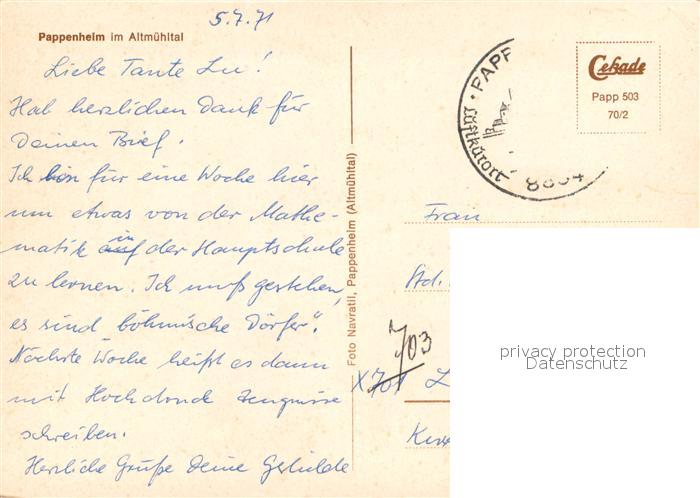 5.7.71
Pappenheim im Altmühltal
Liebe Tante Lu!
Hab herzlichen Dank für
Deinen Brief.
Ich bin für eine Woche hier
um etwas von der Mathe-
matik in der Hauptschule
zu lernen. Ich muß gestehen,
es sind "böhmische Dörfer".
Nächste Woche heißt es dann
mit Hochdruck Zeugnisse
schreiben.
Herzliche Grüße Deine
Foto Navratil, Pappenheim (Altmühltal)
PAPP
Luftkurort
Cekade
Papp 503
70/2
Frau
Std.
703
X 701
privacy protection
Datenschutz